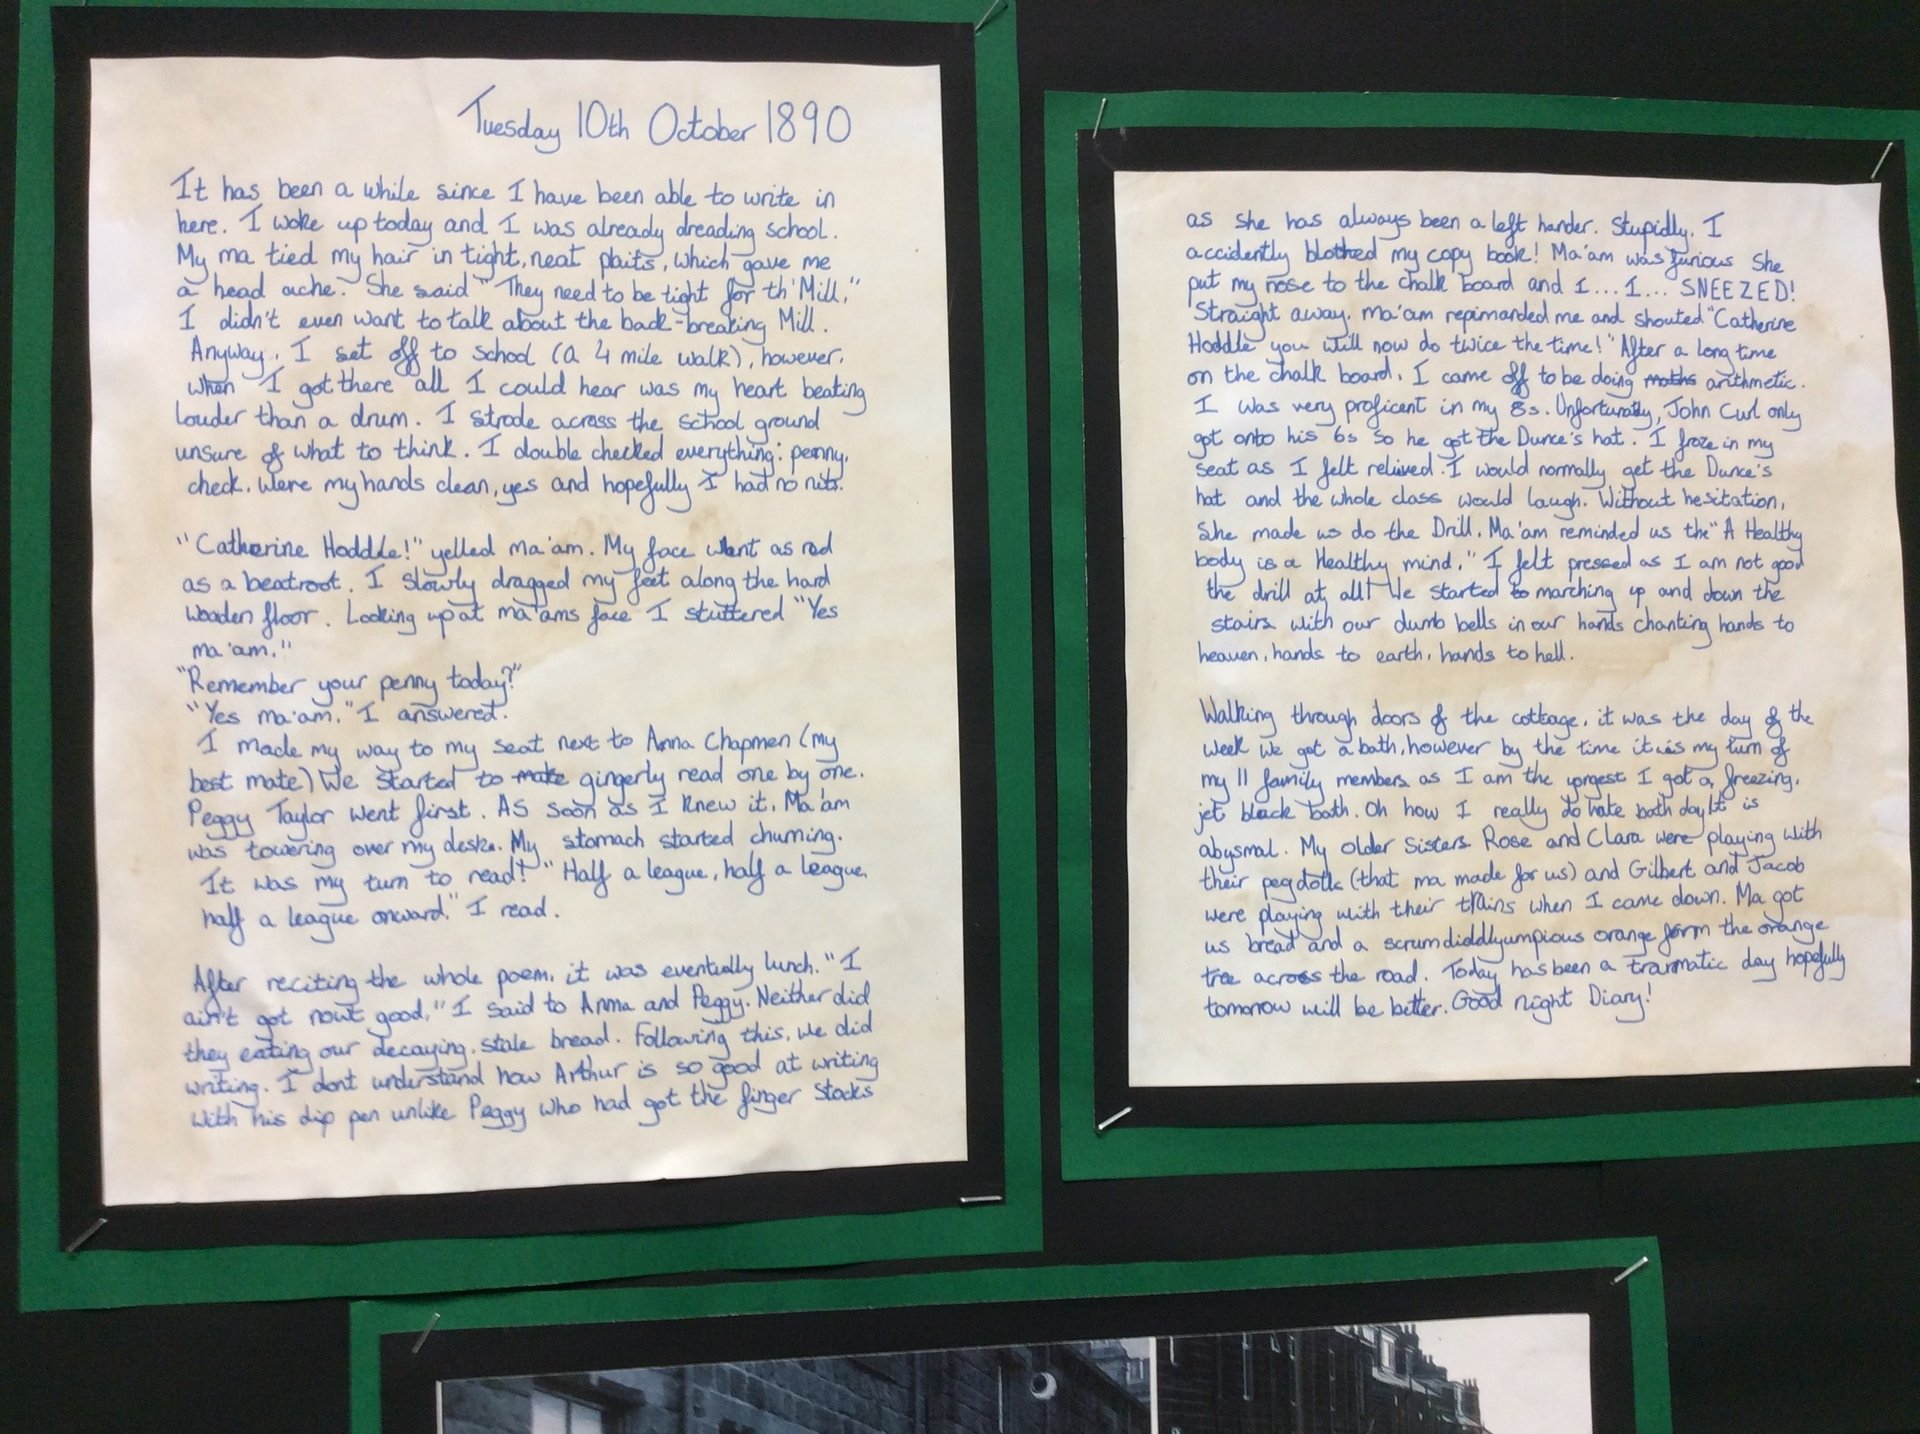 Tuesday 10th October 1890
It has been a while since I have been able to write in
here. I woke up today and I was already dreading school.
My ma tied my hair in tight, neat plaits, which gave me
a head ache. She said "They need to be tight for th' Mill."
I didn't even want to talk about the back-breaking Mill.
Anyway, I set off to school (a 4 mile walk), however,
when I got there all I could hear was my heart beating
louder than a drum. I strode across the school ground
unsure of what to think. I double checked everything: penny,
check, were my hands clean, yes and hopefully I had no nits.
"Catherine Hoddle!" yelled ma'am. My face went as red
as a beatroot. I slowly dragged my feet along the hard
wooden floor. Looking up at ma'ams face I stuttered "Yes
ma'am."
"Remember your penny today?"
"Yes ma'am." I answered.
I made my way to my seat next to Anna Chapmen (my
best mate) We started to make gingerly read one by one.
Peggy Taylor went first. As soon as I knew it, Ma'am
was towering over my desk. My stomach started churning.
It was my turn to read! "Half a league, half a league,
half a league onward." I read.
After reciting the whole poem, it was eventually lunch. "I
ain't got nowt good," I said to Anna and Peggy. Neither did
they eating our decaying, stale bread. Following this, we did
writing. I dont understand how Arthur is so good at writing
with his dip pen unlike Peggy who had got the finger stocks
as she has always been a left hander. Stupidly, I
accidently blothed my copy book! Ma'am was furious She
put my nose to the chalk board and I...I... SNEEZED!
Straight away, ma'am repimanded me and shouted "Catherine
Hoddle you will now do twice the time!" After a long time
on the chalk board, I came off to be doing maths arithmetic.
I was very proficent in my 8s. Unfortunatly, John Curl only
got onto his 6s so he got the Dunce's hat. I froze in my
seat as I felt relieved. I would normally get the Dunce's
hat and the whole class would laugh. Without hesitation,
she made us do the Drill. Ma'am reminded us the "A Healthy
body is a Healthy mind." I felt pressed as I am not good
the drill at all! We started to marching up and down the
stairs with our dumb bells in our hands chanting hands to
heaven, hands to earth, hands to hell.
Walking through doors of the cottage, it was the day of the
week we got a bath, however by the time it was my turn of
my 11 family members as I am the yorgest I got a freezing,
jet black bath. Oh how I really do hate bath day It is
abysmal. My older sisters Rose and Clara were playing with
their peg dolls (that ma made for us) and Gilbert and Jacob
were playing with their trains when I came down. Ma got
us bread and a scrumdiddlyumpious orange form the orange
tree across the road. Today has been a traumatic day hopefully
tomorrow will be better. Good night Diary!